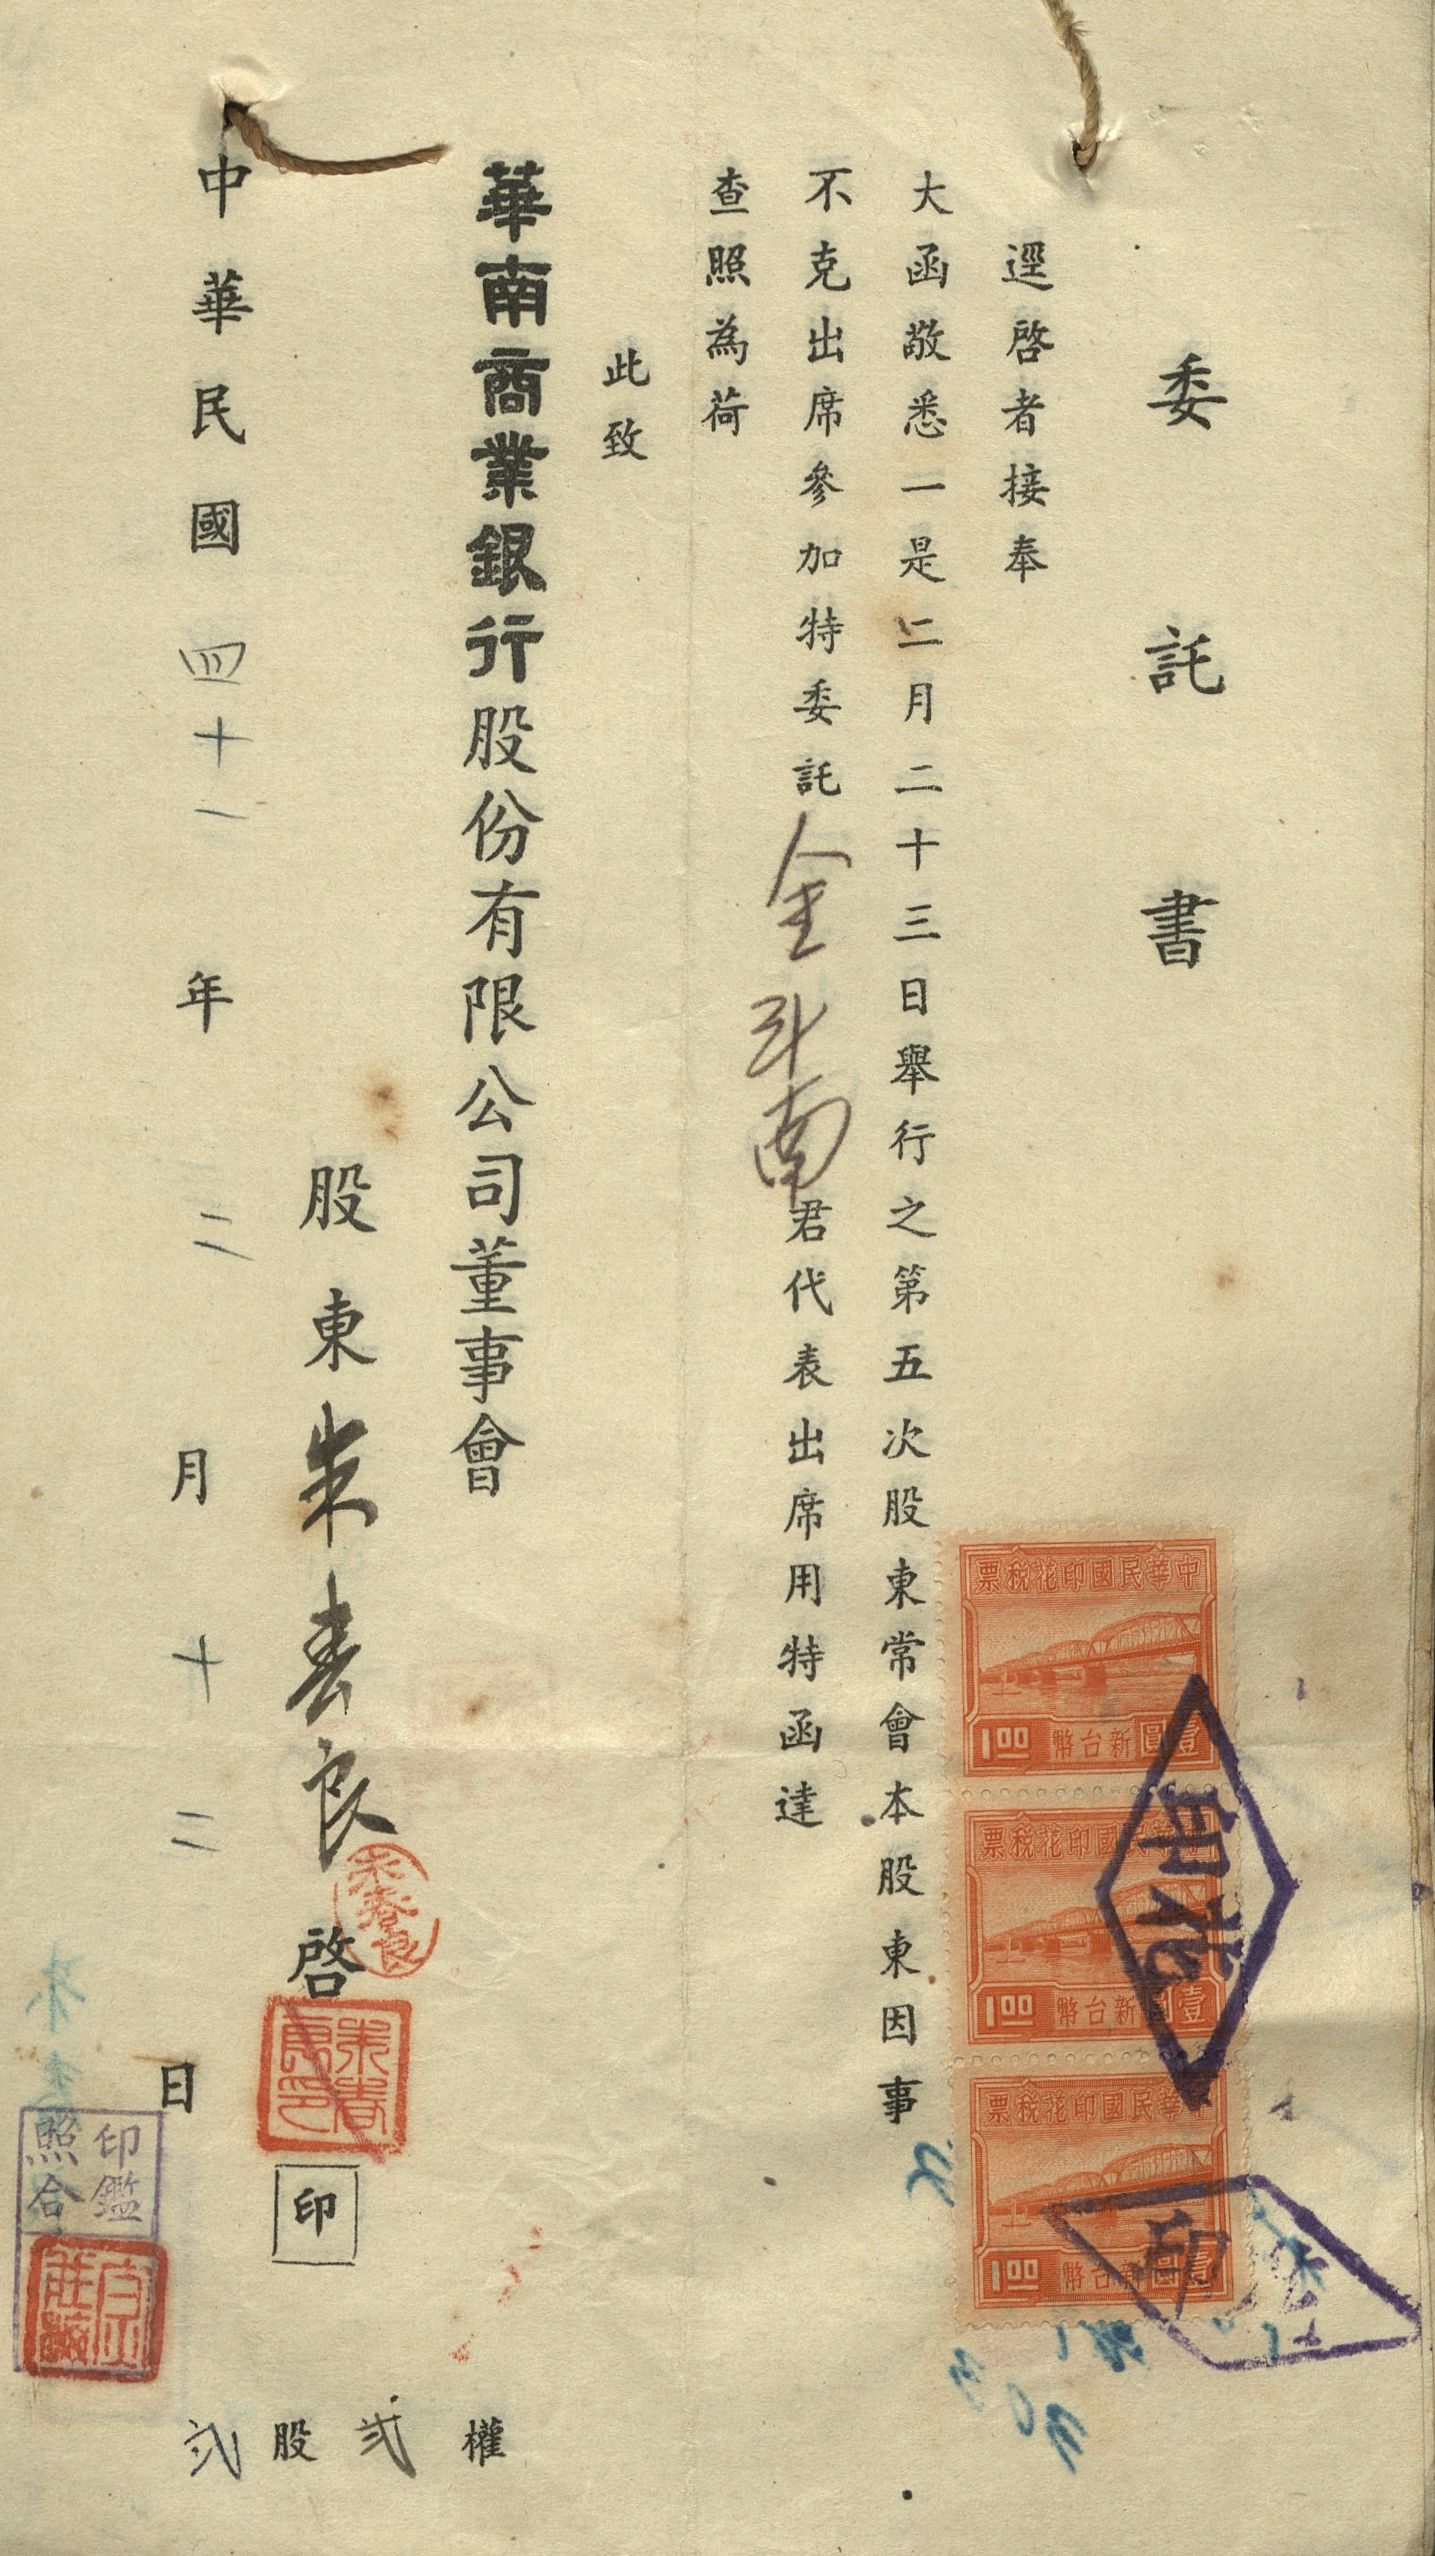 委託書
逕啓者接奉
大函敬悉一是二月二十三日舉行之第五次股東常會本股東因事
不克出席參加特委託金斗南君代表出席用特函達
查照為荷
此致
華南商業銀行股份有限公司董事會
股東朱春良啓
印
中華民國四十一年二月十二日
弍股弍權
朱春良
朱春良印
印鑑
照合
票稅花印國民華中
1.00 幣台新圓壹
票稅花印國民華中
1.00 幣台新圓壹
票稅花印國民華中
1.00 幣台新圓壹
印花
印